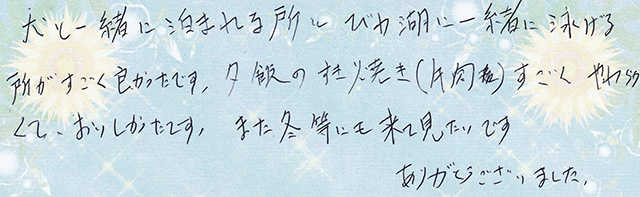 犬と一緒に泊まれる所と びわ湖に一緒に泳げる
所がすごく良かったです。夕飯のすき焼き(牛肉)すごく やわらか
くて、おいしかったです。また冬等にも来て見たいです
ありがとうございました。